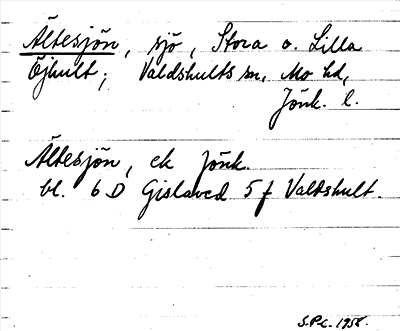 Ältesjön, sjö, Stora o. Lilla
Öjhult; Valdshults sn, Mo hd,
Jönk. l.
Ältesjön, ek Jönk.
bl. 6 D Gislaved 5 f Valdshult.
S.P.L. 1958.